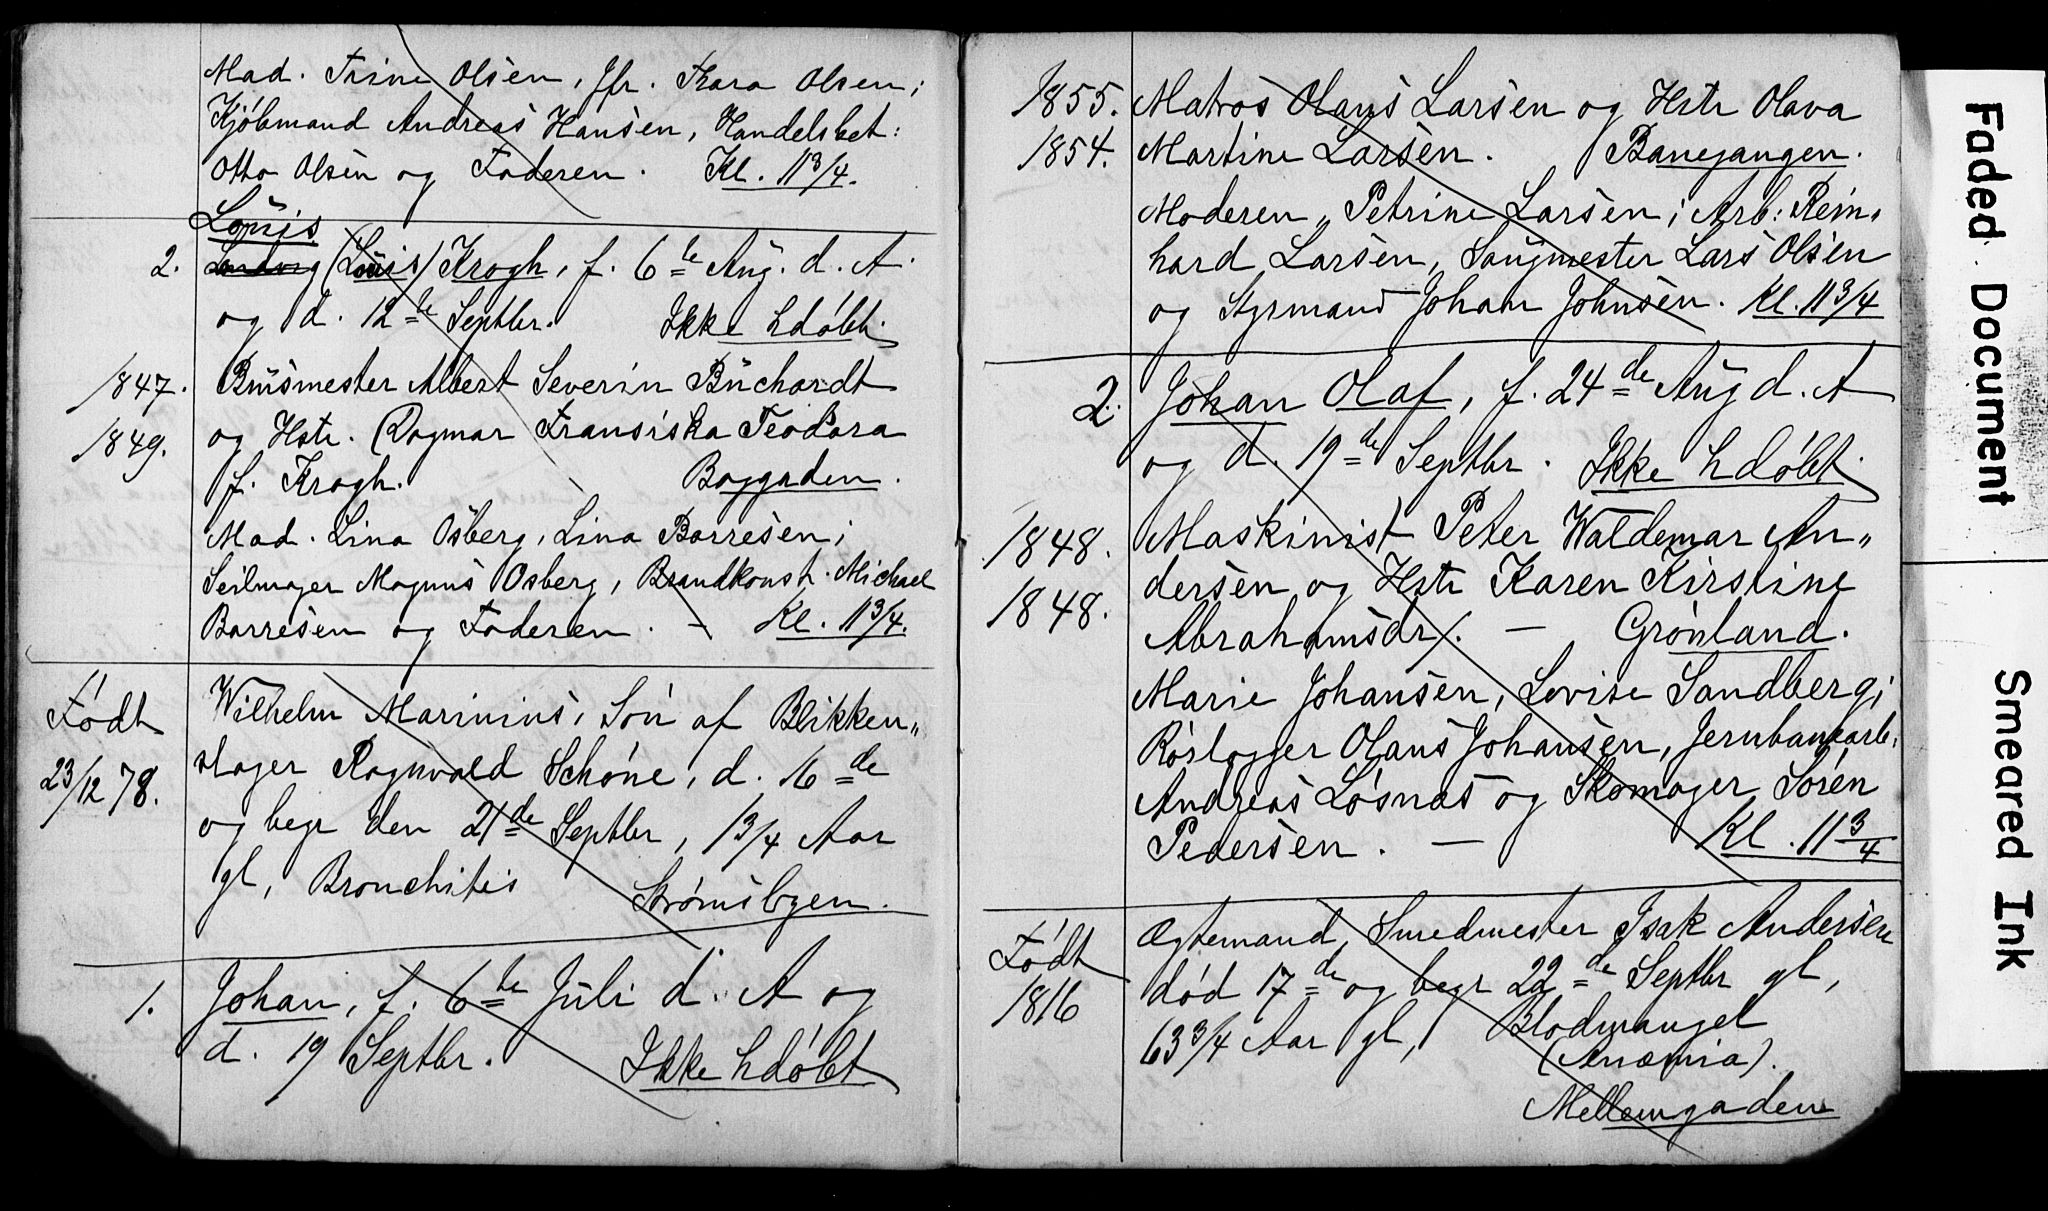 Mad. Trine Olsen, Jfr. Thara Olsen;
Kjøbmand Andreas Hansen, Handelsbet:
Otto Olsen og Faderen. Kl. 11 3/4.
Louis
2. Ludvig (Louis) Krogh, f. 6te Aug. d. A.
og d. 12te Septbr. Ikke hdøbt.
1847. Buismester Albert Severin Buchardt
1849. og Hstr. Dagmar Fransiska Teodora
f. Krogh. Baggaden.
Mad. Lina Osberg, Lina Borresen;
Seilmager Magnus Osberg, Brandkonst. Michael
Borresen og Faderen. - Kl. 11 3/4.
Født Wilhelm Marinius, Søn af Blikken„
23/12 78. slager Ragnvald Schøne, d. 16de
og begr den 21de Septbr, 1 3/4 Aar
gl, Bronchitis Strømsbyen.
1. Johan, f. 6te Juli d. A og
d. 19 Septbr. Ikke hdøbt
1855. Matros Olaus Larsen og Hstr Olava
1854. Martine Larsen. Banegangen.
Moderen, Petrine Larsen; Arb: Rein„
hard Larsen, Saugmester Lars Olsen
og Styrmand Johan Johnsen. Kl. 11 3/4
2. Johan Olaf, f. 24de Aug d. A
og d. 19de Septbr. Ikke hdøbt.
1848. Maskinist Peter Waldemar An„
1848. dersen og Hstr Karen Kirstine
Abrahamsdr. - Grønland.
Marie Johansen, Lovise Sandberg;
Rørlegger Olaus Johansen, Jernbanearb.
Andreas Løsnæs og Skomager Søren
Pedersen. - Kl. 11 3/4
Født Ægtemand, Smedmester Isak Andersen
1816 død 17de og begr 22de Septbr gl,
63 3/4 Aar gl, Blodmangel
(Anæmia).
Mellemgaden
Faded Document
Smeared Ink